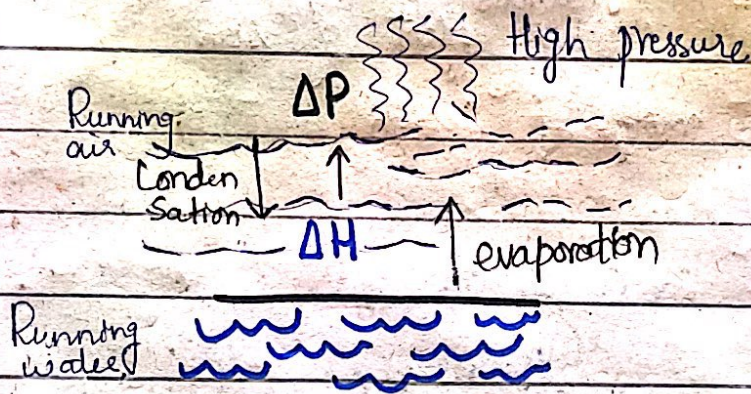 High pressure
ΔP
Running
air
Conden
sation
ΔH
evaporation
Running
water